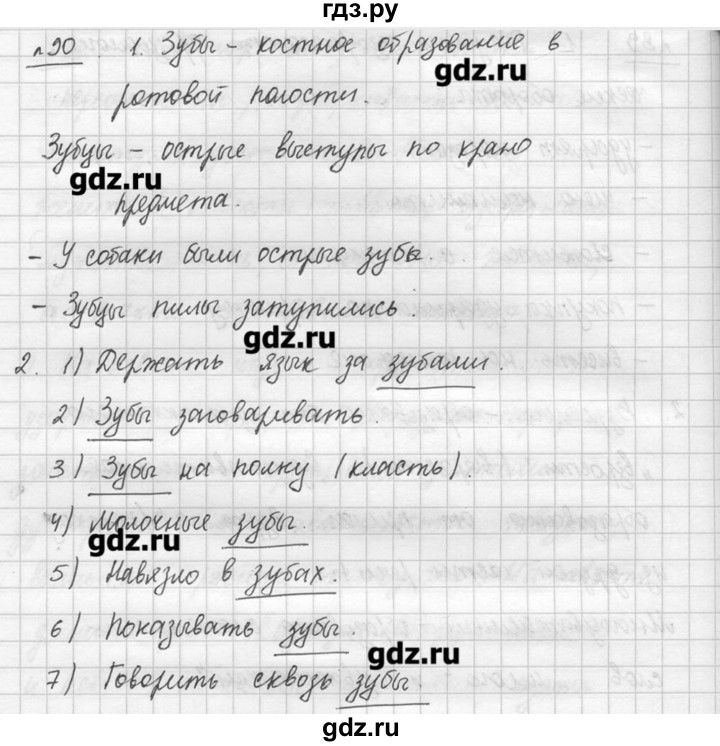 гдз.ру
№90. 1. Зубы - костное образование в
gdz.ru
ротовой полости.
Зубцы - острые выступы по краю
gdz.ru
предмета.
- У собаки были острые зубы.
- Зубцы пилы затупились.
gdz.ru
2. 1) Держать язык за зубами.
2) Зубы заговаривать.
3) Зубы на полку (класть).
4) Молочные зубы.
gdz.ru
5) Навязло в зубах.
6) Показывать зубы.
gdz.ru
7) Говорить сквозь зубы.
gdz.ru